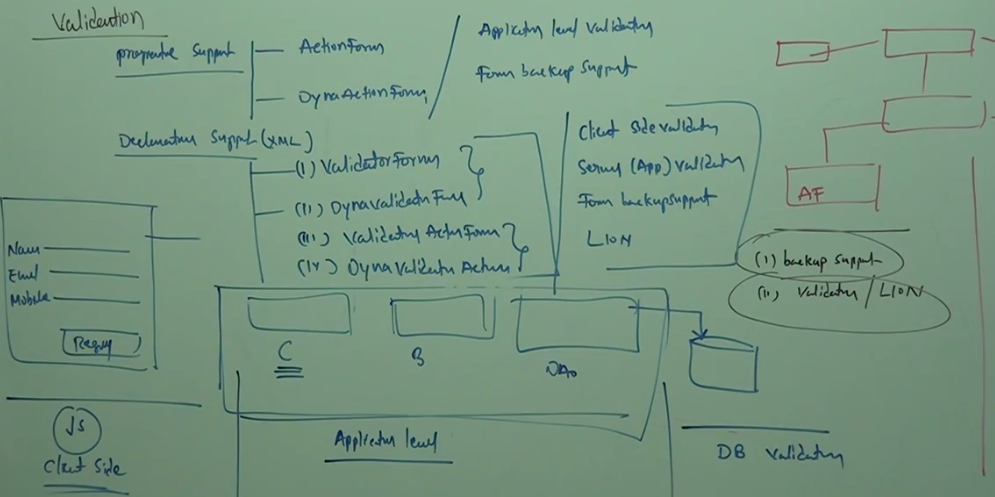 Validation
Support
ActionForm
DynaActionForm
Application level validation
Form backup support
Declarative Support (XML)
(I) ValidatorForm
(II) Dynavalidator Form
(III) Validator Action Form
(IV) DynaValidator Action
Client Side validation
Server (App) validation
Form backup support
LION
AF
(I) backup support
(II) Validation / LION
Name
Email
Mobile
C
B
DAO
Application level
JS
Client Side
DB validation